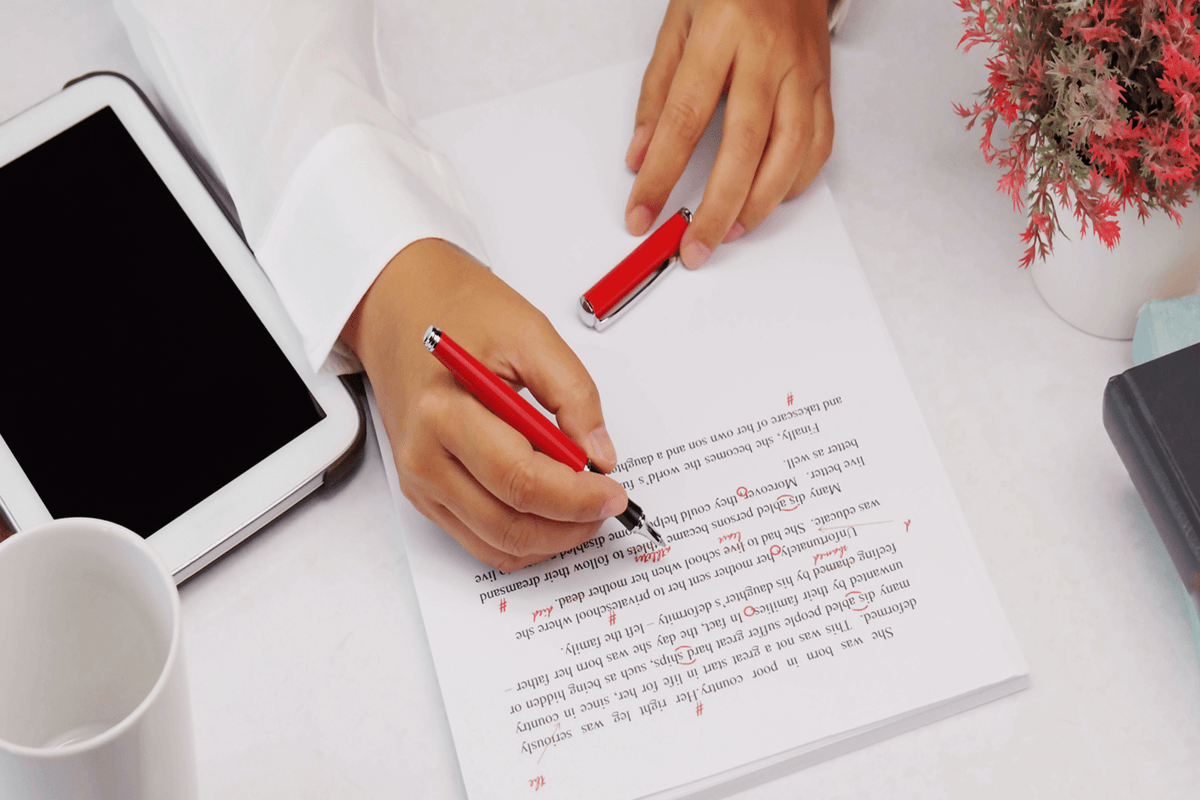 the
She was born in poor country.Her right leg was seriously
#
deformed. This was not a great start in life for her, since in country
many dis abled people suffer great hard ships, such as being hidden or
unwanted by their families In fact, the day she was born her father –
shamed
feeling chamed by his daughter's deformity – left the family.
#
Unfortunately her mother sent her to privateschool where she
d
leave
died
was educate. She had to live school when her mother dead.
athletes
#
Many dis abled persons became athlets to follow their dreamsand
live better. Moreover, they could help some disabled to live
better as well.
Finally, she becomes the world's
#
and takescare of her own son and a